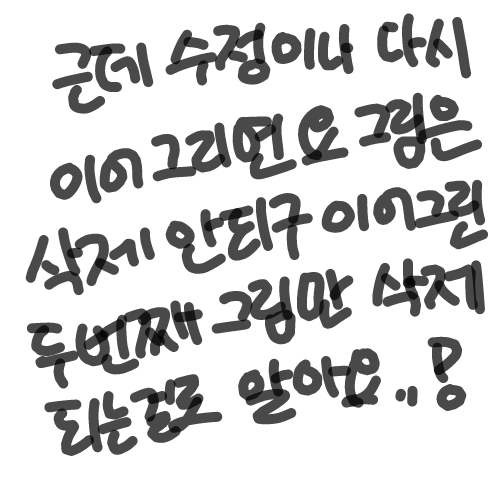 근데 수정이나 다시
이어그리면요 그림은
삭제 안되구 이어그린
두번째 그림만 삭제
되는걸로 알아요..?